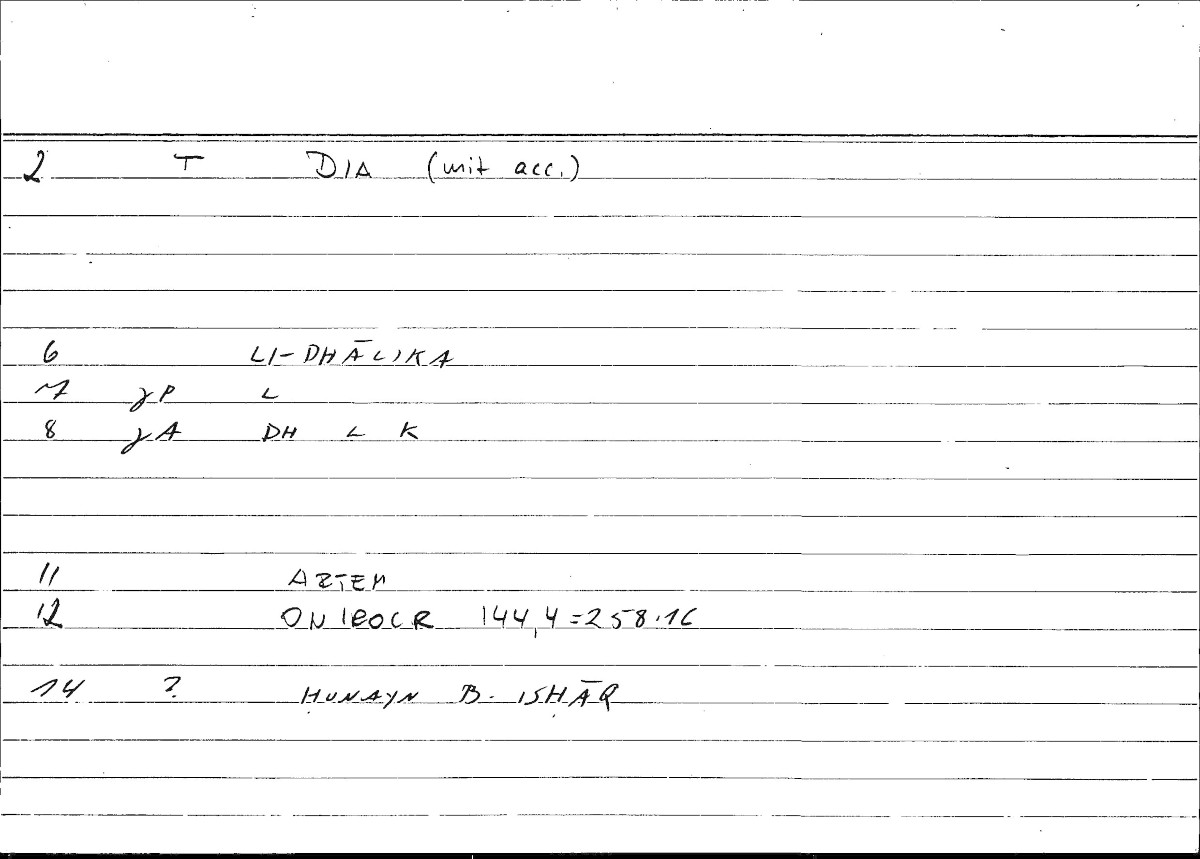 2 T DIA (mit acc.)
6 LI-DHĀLIKA
7 γP L
8 γA DH L K
11 ARTEM
12 ONIROCR 144,4=258.16
14 ? ḤUNAYN B. ISḤĀQ